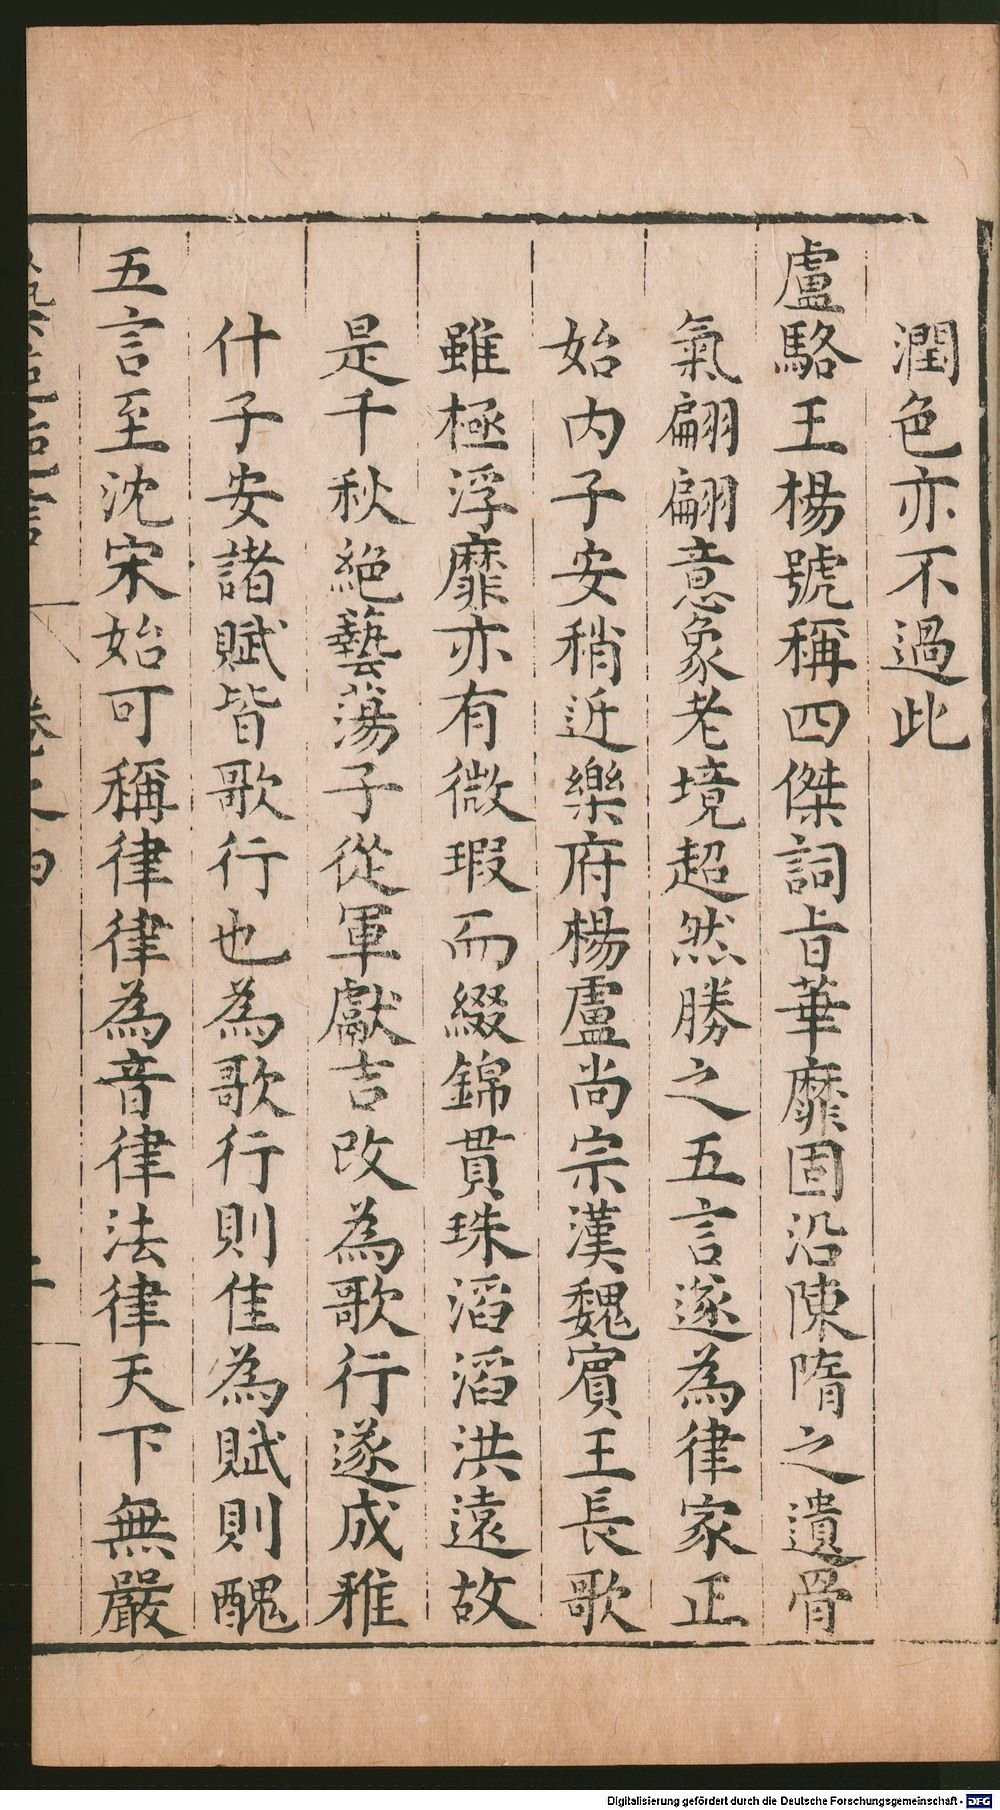 潤色亦不過此
盧駱王楊號稱四傑詞旨華靡固沿陳隋之遺骨
氣翩翩意象老境超然勝之五言遂為律家正
始内子安稍近樂府楊盧尚宗漢魏賓王長歌
雖極浮靡亦有微瑕而綴錦貫珠滔滔洪遠故
是千秋絕藝蕩子從軍獻吉改為歌行遂成雅
什子安諸賦皆歌行也為歌行則佳為賦則醜
五言至沈宋始可稱律律為音律法律天下無嚴
Digitalisierung gefördert durch die Deutsche Forschungsgemeinschaft - DFG